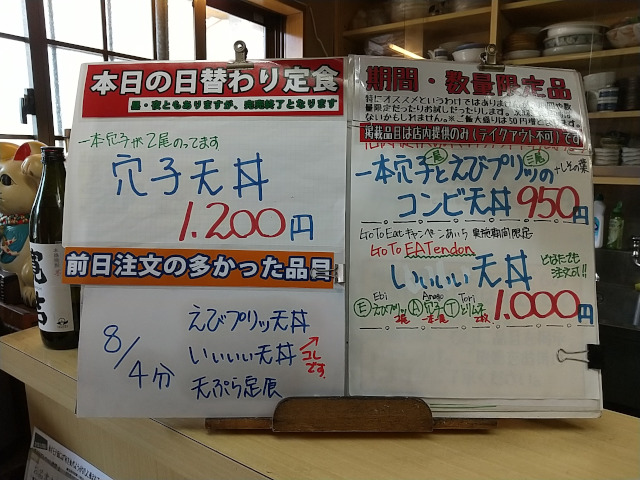 本日の日替わり定食
昼・夜ともありますが、完売終了となります
一本穴子が2尾のってます
穴子天丼
1.200円
前日注文の多かった品目
8/4分
えびプリッ天丼
いいいい天丼
コレです。
天ぷら定食
期間・数量限定品
特にオススメというわけではありま
量限定だったりお試しだったりします。
ないかもしれません。※ご飯大盛りは50円増
掲載品目は店内提供のみ(テイクアウト不可)です
一本穴子とえびプリッの
一尾
三尾
+しその葉
コンビ天丼950円
GoToEatキャンペーンあいち 実施期間限定
GoTo EATendon
いいいい天丼
どなたでも
注文可!!
Ebi
Anago
Tori
Eえびプリッ
2尾
A穴子
一本
Tとりムネ
2枚
1.000円